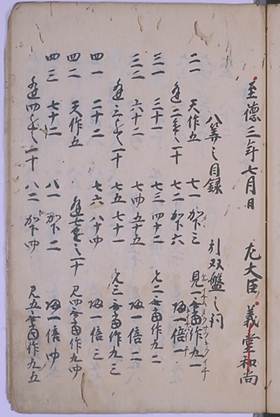 至徳三年七月日 左大臣 義堂和尚
八算之目録 引双盤之詞
二一 天作五 七一 加下三 見一無頭作九一
逢二進一十 七二 加下六 帰一倍一
三一 三十一 七三 四十二 見二無頭作九二
三二 六十二 七四 五十五 帰一倍二
逢三進一十 七五 七十一 見三無頭作九三
四一 二十二 七六 八十四 帰一倍三
四二 天作五 逢七進一十 見四無頭作九四
四三 七十二 八一 加下二 帰一倍四
逢四進一十 八二 加下四 見五無頭作九五